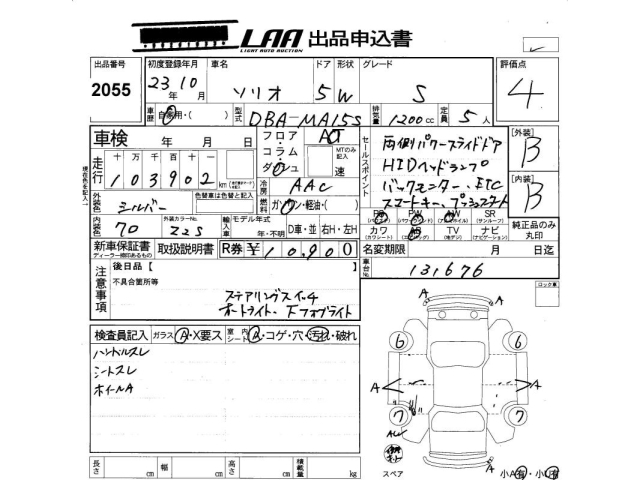 LAA 出品申込書
LIGHT AUTO AUCTION
出品番号 初度登録年月 車名 ドア 形状 グレード 評価点
2055 23年10月 ソリオ 5 W S 4
車歴 自家用・( ) 型式 DBA-MA15S 排気量 1200cc 定員 5人
車検 年 月 日
フロア コラム ダッシュ AT MTのみ記入 速
セールスポイント
両側パワースライドドア
HIDヘッドランプ
バックモニター、ETC
スマートキー、プッシュスタート
[外装] B
[内装] B
走行 十万千百十
103902 km
冷房 AAC
燃料 ガソリン・軽油・( )
外装色 シルバー 色替車は色替と記入
PS PW AW SR
(パワステ) (パワーウィンドウ) (アルミホイル) (サンルーフ)
カワ AB TV ナビ
(レザーシート) (エアバッグ) (地デジ) (ナビゲーション)
純正品のみ丸印
内装色 70 外装カラーNo. Z2S 輸入車 モデル年式 年・不明 D車・並 右H・左H
新車保証書 取扱説明書 R券 ¥10,900 名変期限 月 日迄
ディーラー捺印あるもの
車台No. 131676
注意事項 後日品【 】
不具合箇所等
ステアリングスイッチ
オートライト、
ロック車
検査員記入 ガラス A・X要ス 室内シート A・コゲ・穴・汚れ・破れ
ハンドルスレ
シートスレ
ホイールA
A
6 6
A A
7 7
A
スペア
小A有・小U有
長さ cm 幅 cm 高さ cm 積載量 kg